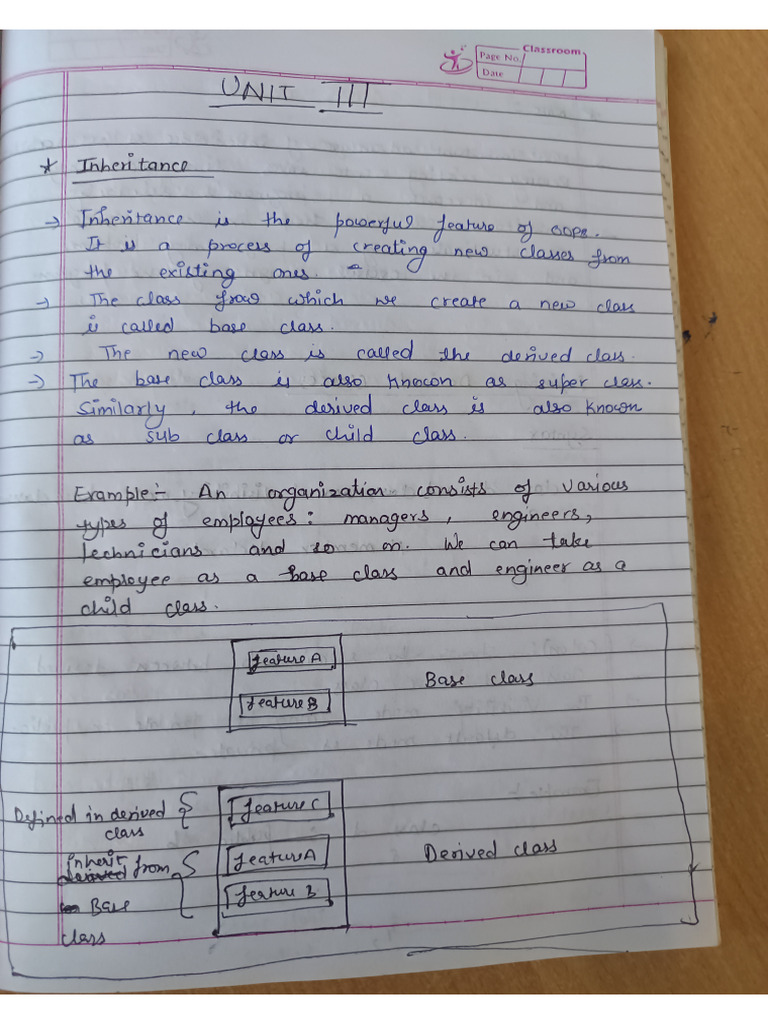 Classroom
Page No.
Date
UNIT III
* Inheritance
→ Inheritance is the powerful feature of OOPs.
It is a process of creating new classes from
the existing ones.
→ The class from which we create a new class
is called base class.
→ The new class is called the derived class.
→ The base class is also known as super class.
Similarly, the derived class is also known
as sub class or child class.
Example:- An organization consists of various
types of employees: managers, engineers,
technicians and so on. We can take
employee as a base class and engineer as a
child class.
feature A
Base class
feature B
Defined in derived
class
feature C
Inherit
derived from
Base
class
feature A
feature B
Derived class